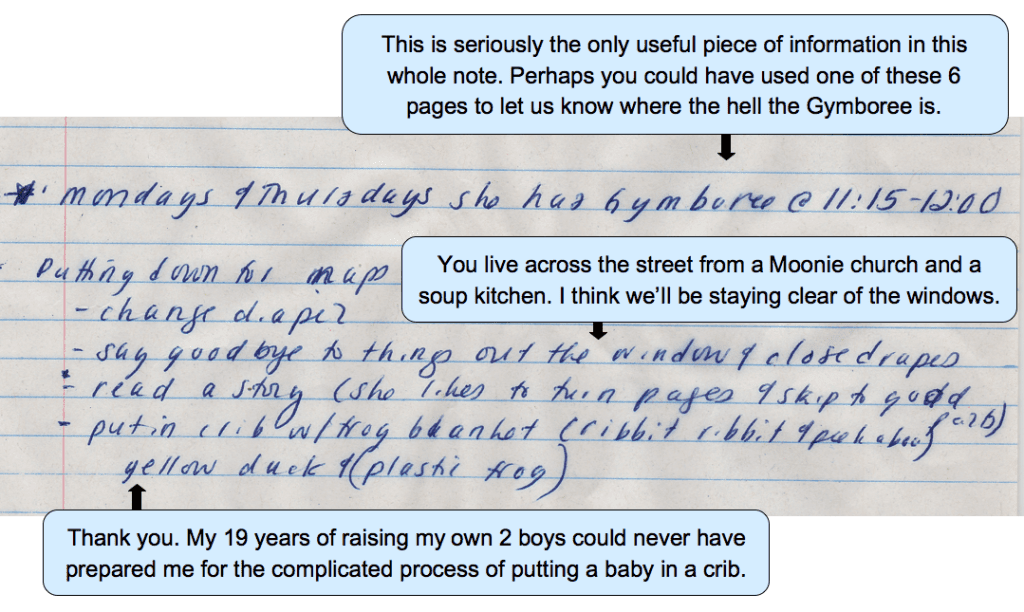 This is seriously the only useful piece of information in this
whole note. Perhaps you could have used one of these 6
pages to let us know where the hell the Gymboree is.
* Mondays & Thursdays she has Gymboree @ 11:15-12:00
You live across the street from a Moonie church and a
soup kitchen. I think we'll be staying clear of the windows.
- Putting down for nap
- change diaper
- say goodbye to things out the window & close drapes
- read a story (she likes to turn pages & skip to good
parts)
- put in crib w/ frog blanket (ribbit ribbit & peekaboo)
yellow duck & (plastic frog)
Thank you. My 19 years of raising my own 2 boys could never have
prepared me for the complicated process of putting a baby in a crib.